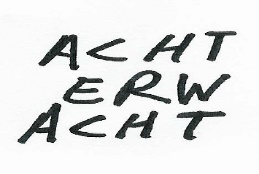 ACHT
ERW
ACHT